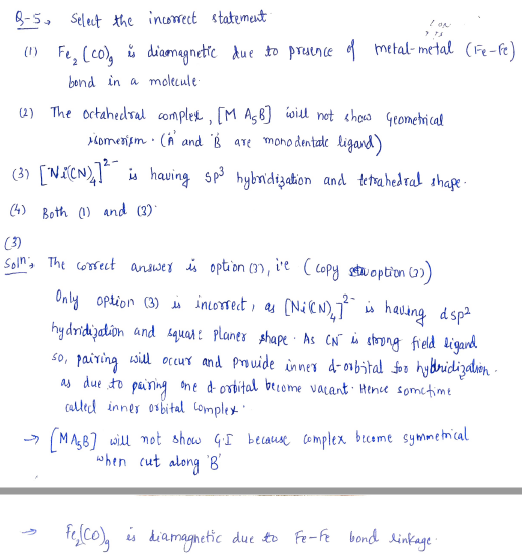 Q-5→ Select the incorrect statement
(1) Fe2(CO)9 is diamagnetic due to presence of metal-metal (Fe-Fe)
bond in a molecule.
(2) The octahedral complex, [M A5B] will not show Geometrical
isomerism. (A' and 'B are monodentate ligand)
(3) [Ni(CN)4]2- is having sp3 hybridization and tetrahedral shape.
(4) Both (1) and (3)
(3)
Soln: The correct answer is option (3), i'e ( copy option (3))
Only option (3) is incorrect, as [Ni(CN)4]2- is having dsp2
hydridization and square planer shape. As CN- is strong field ligand
so, pairing will occur and provide inner d-orbital for hybridization.
as due to pairing one d-orbital become vacant. Hence sometime
called inner orbital complex.
→ [MA5B] will not show G.I because complex become symmetrical
when cut along 'B'
→ Fe2(CO)9 is diamagnetic due to Fe-Fe bond linkage.